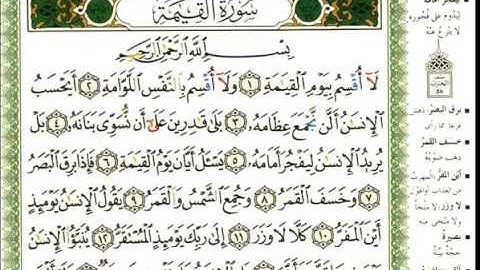 سُورَةُ الْقِيَامَةِ
بِسْمِ اللَّهِ الرَّحْمَٰنِ الرَّحِيمِ
لَا أُقْسِمُ بِيَوْمِ الْقِيَامَةِ ١ وَلَا أُقْسِمُ بِالنَّفْسِ اللَّوَّامَةِ ٢ أَيَحْسَبُ
الْإِنسَانُ أَلَّن نَّجْمَعَ عِظَامَهُ ٣ بَلَىٰ قَادِرِينَ عَلَىٰ أَن نُّسَوِّيَ بَنَانَهُ ٤ بَلْ
يُرِيدُ الْإِنسَانُ لِيَفْجُرَ أَمَامَهُ ٥ يَسْأَلُ أَيَّانَ يَوْمُ الْقِيَامَةِ ٦ فَإِذَا بَرِقَ الْبَصَرُ
٧ وَخَسَفَ الْقَمَرُ ٨ وَجُمِعَ الشَّمْسُ وَالْقَمَرُ ٩ يَقُولُ الْإِنسَانُ يَوْمَئِذٍ
أَيْنَ الْمَفَرُّ ١٠ كَلَّا لَا وَزَرَ ١١ إِلَىٰ رَبِّكَ يَوْمَئِذٍ الْمُسْتَقَرُّ ١٢ يُنَبَّأُ الْإِنسَانُ
لِيَدُومَ عَلَى فُجُورِهِ
برق البصر
خسف القمر
أين المفر
لا وزر
بصيرة